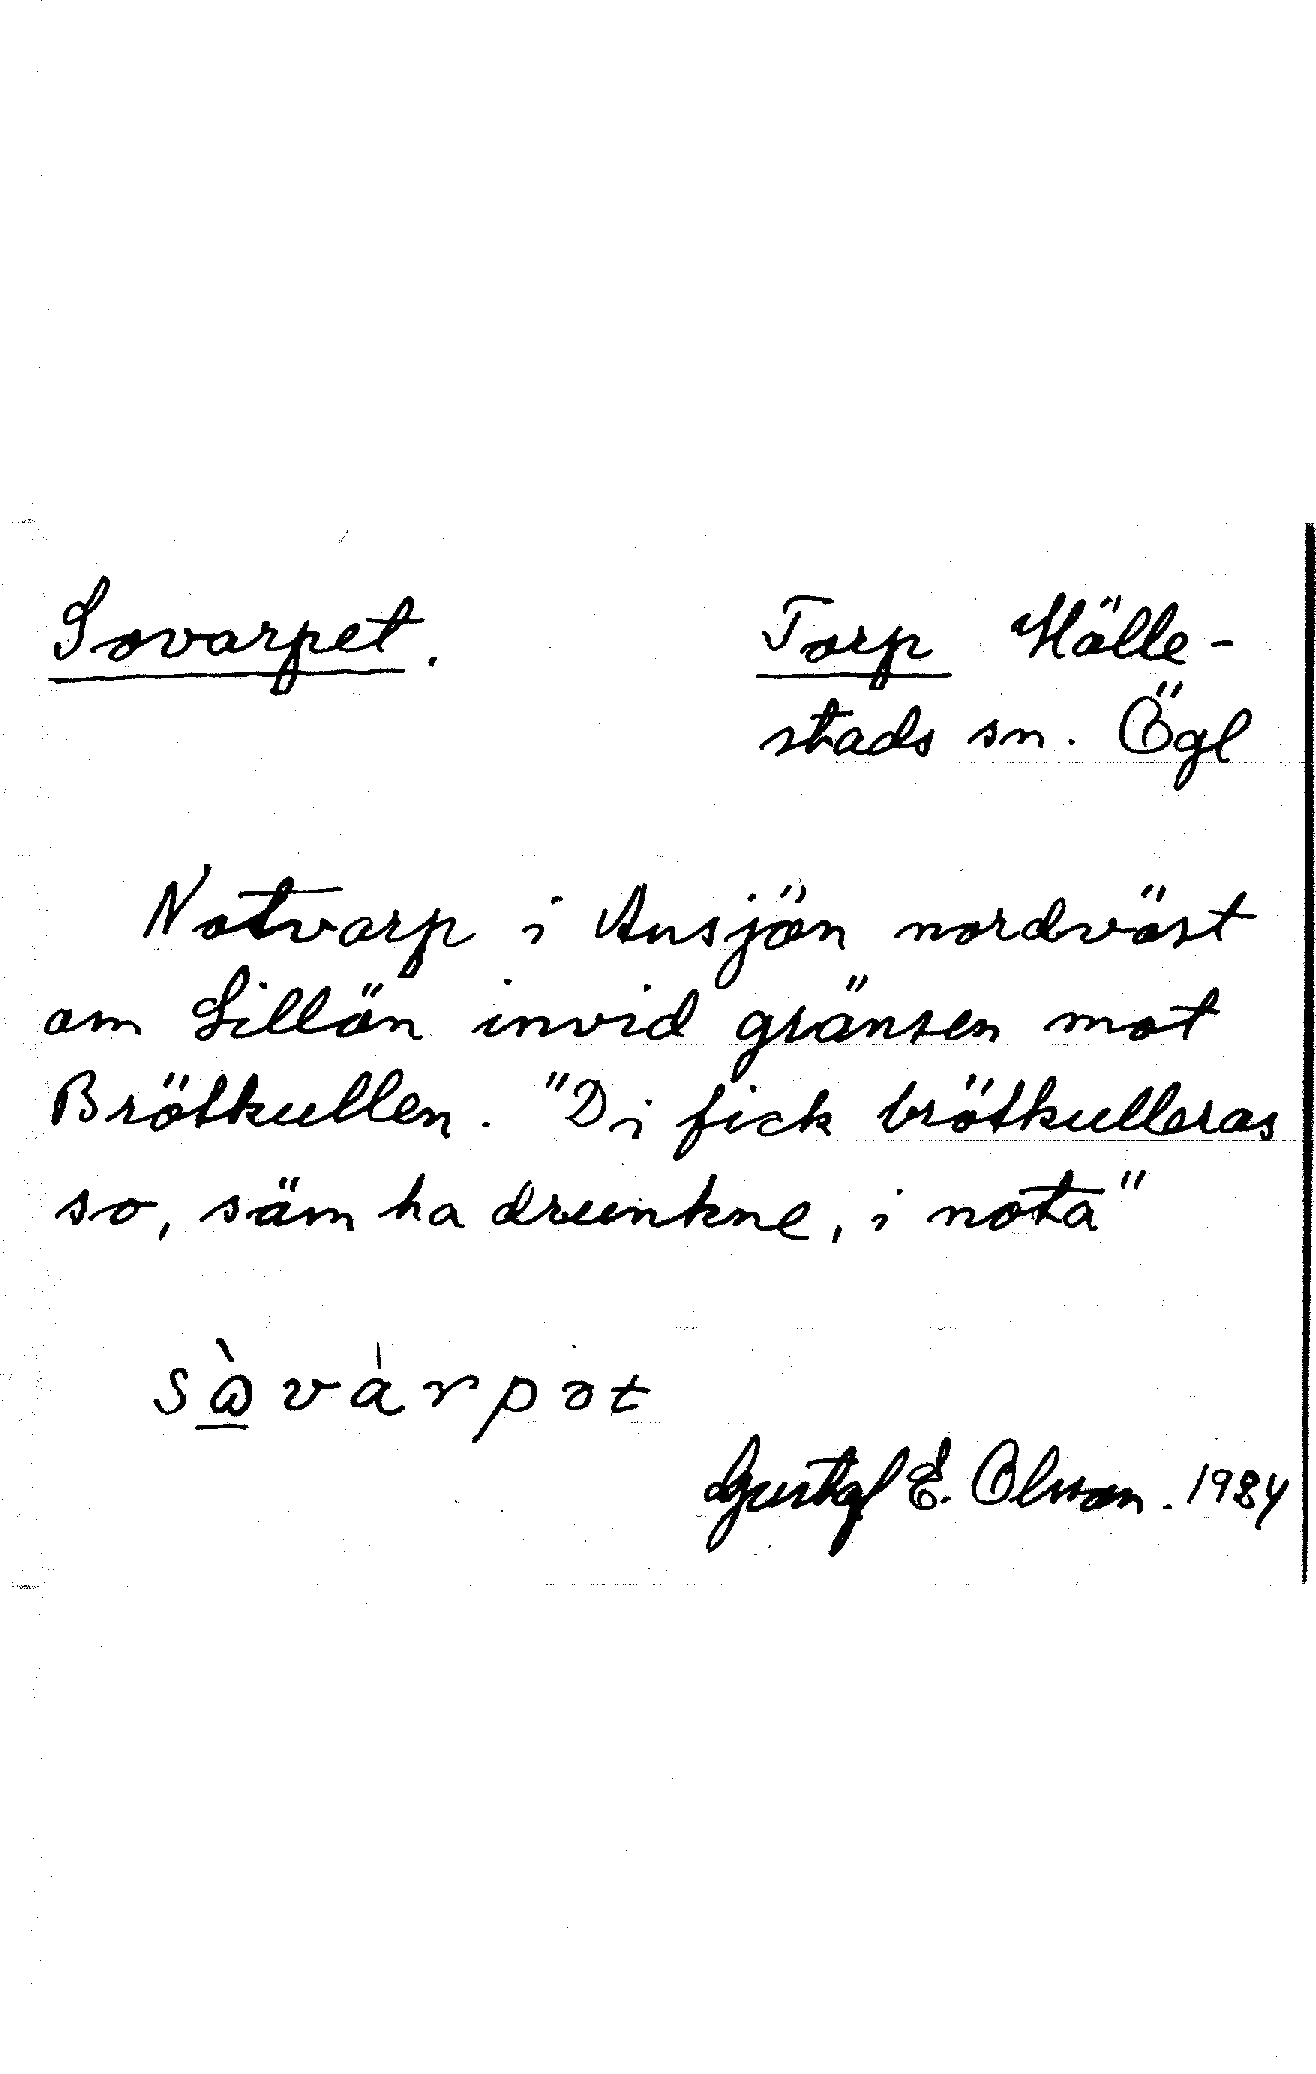 Sovarpet. Torp Hälle-
stads sn. Ögl
Notvarp i Ansjön nordväst
om Lillön invid gränsen mot
Brötkullen. "Di fick brötkulleras
so, säm ha drunkne, i nota"
Gustaf E. Olsson. 1984